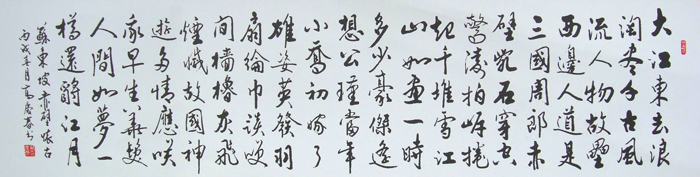 大江東去浪
淘尽千古風
流人物故壘
西邊人道是
三國周郎赤
壁乱石穿空
驚濤拍岸捲
起千堆雪江
山如畫一時
多少豪傑遙
想公瑾當年
小喬初嫁了
雄姿英發羽
扇綸巾談笑
間檣櫓灰飛
煙滅故國神
遊多情應笑
我早生華髮
人間如夢一
樽還酹江月
蘇東坡赤壁懷古
丙戌年月高春书